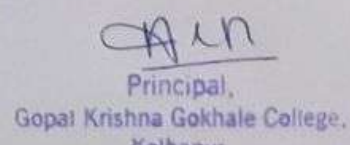 Principal,
Gopal Krishna Gokhale College,
Kolhapur